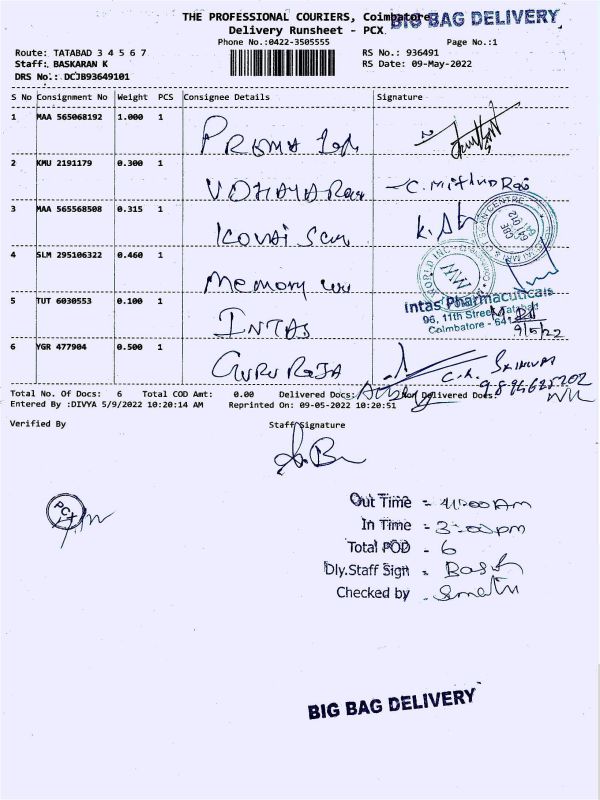 THE PROFESSIONAL COURIERS, Coimbatore
BIG BAG DELIVERY
Delivery Runsheet - PCX
Phone No.:0422-3505555 Page No.:1
Route: TATABAD 3 4 5 6 7 RS No.: 936491
Staff: BASKARAN K RS Date: 09-May-2022
DRS No.: DCJB93649101
S No Consignment No Weight PCS Consignee Details Signature
1 MAA 565068192 1.000 1
2 KMU 2191179 0.300 1
3 MAA 565568508 0.315 1 Kovai Scan K.
4 SLM 295106322 0.460 1 Memory
Intas Pharmaceuticals
96, 11th Street, Tatabad
Coimbatore - 641
5 TUT 6030553 0.100 1 INTAS 9/5/22
6 YGR 477904 0.500 1 GURU RAJA
Total No. Of Docs: 6 Total COD Amt: 0.00 Delivered Docs: Non Delivered Docs:
Entered By :DIVYA 5/9/2022 10:20:14 AM Reprinted On: 09-05-2022 10:20:51
Verified By Staff Signature
PCX
Out Time - 11:00 Am
In Time - 3:00 pm
Total POD - 6
Dly.Staff Sign - Bask
Checked by -
BIG BAG DELIVERY